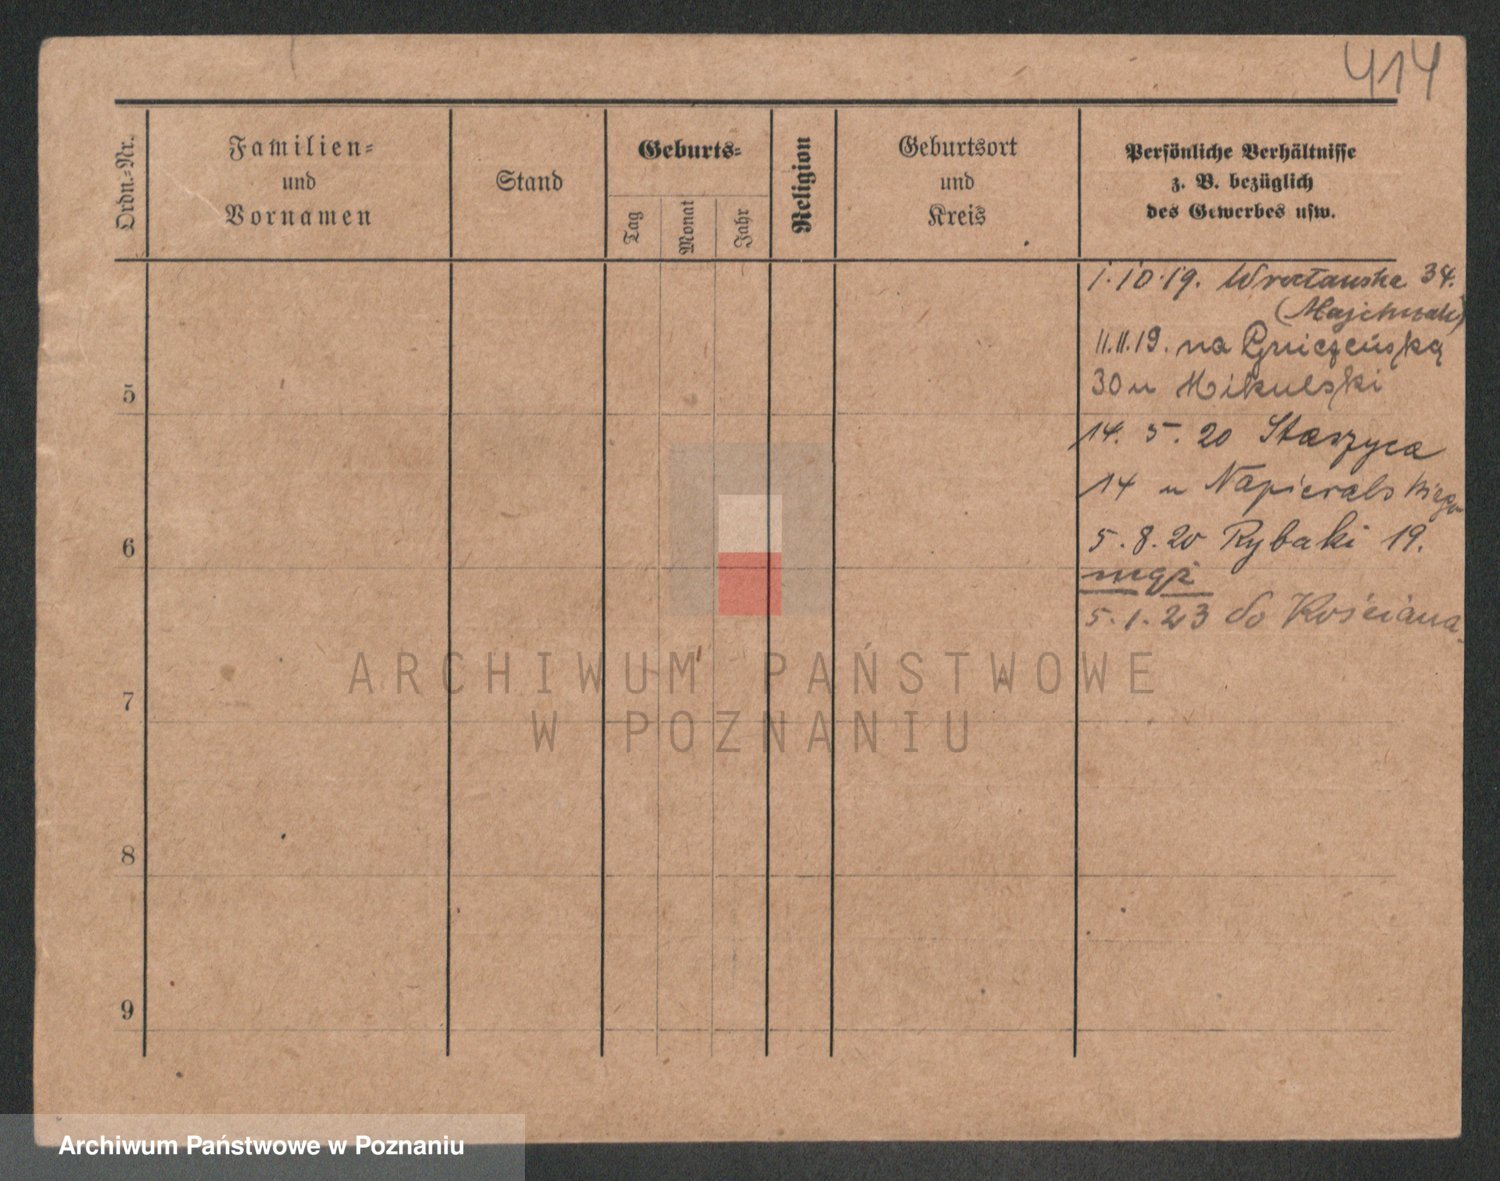 414
Ordn.-Nr.
Familien-
und
Vornamen
Stand
Geburts-
Tag
Monat
Jahr
Religion
Geburtsort
und
Kreis
Persönliche Verhältnisse
z. B. bezüglich
des Gewerbes usw.
1.10.19. Wrocławska 34.
11.11.19. na
30 u Mikulski
14. 5. 20 Staszyca
14 u Napieralskiego
5. 8. 20 Rybaki 19.
5.1.23 do Kościana
5
6
7
8
9
ARCHIWUM PAŃSTWOWE
W POZNANIU
Archiwum Państwowe w Poznaniu